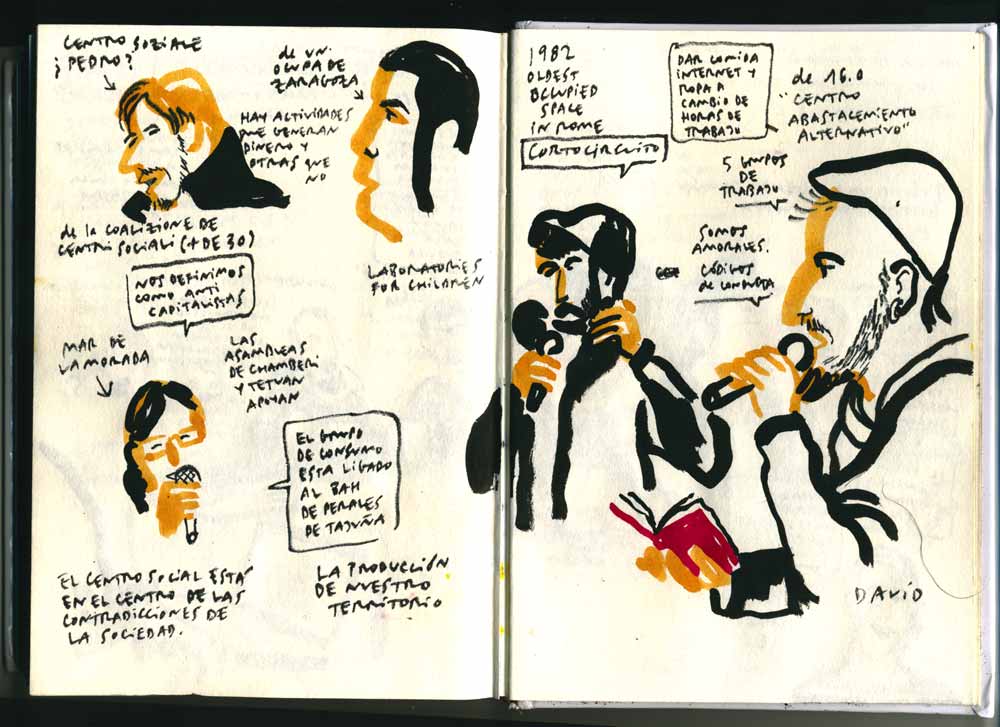 CENTRO SOZIALE
¿PEDRO?
de UN
OKUPA DE
ZARAGOZA
HAY ACTIVIDADES
QUE GENERAN
DINERO Y
OTRAS QUE
NO
de la COALIZIONE DE
CENTRI SOCIALI (+ DE 30)
NOS DEFINIMOS
COMO ANTI
CAPITALISTAS
LABORATORIES
FOR CHILDREN
MAR DE
LA MORADA
LAS
ASAMBLEAS
DE CHAMBERI
Y TETUAN
APOYAN
EL GRUPO
DE CONSUMO
ESTA LIGADO
AL BAH
DE PERALES
DE TAJUÑA
EL CENTRO SOCIAL ESTÁ
EN EL CENTRO DE LAS
CONTRADICCIONES DE
LA SOCIEDAD.
LA PRODUCCIÓN
DE NUESTRO
TERRITORIO
1982
OLDEST
OCCUPIED
SPACE
IN ROME
CORTOCIRCUITO
DAR COMIDA
INTERNET Y
ROPA A
CAMBIO DE
HORAS DE
TRABAJO
de 16.0
"CENTRO
ABASTACIMIENTO
ALTERNATIVO"
5 GRUPOS
DE
TRABAJO
SOMOS
AMORALES.
CÓDIGOS
de CONDUCTA
DAVID